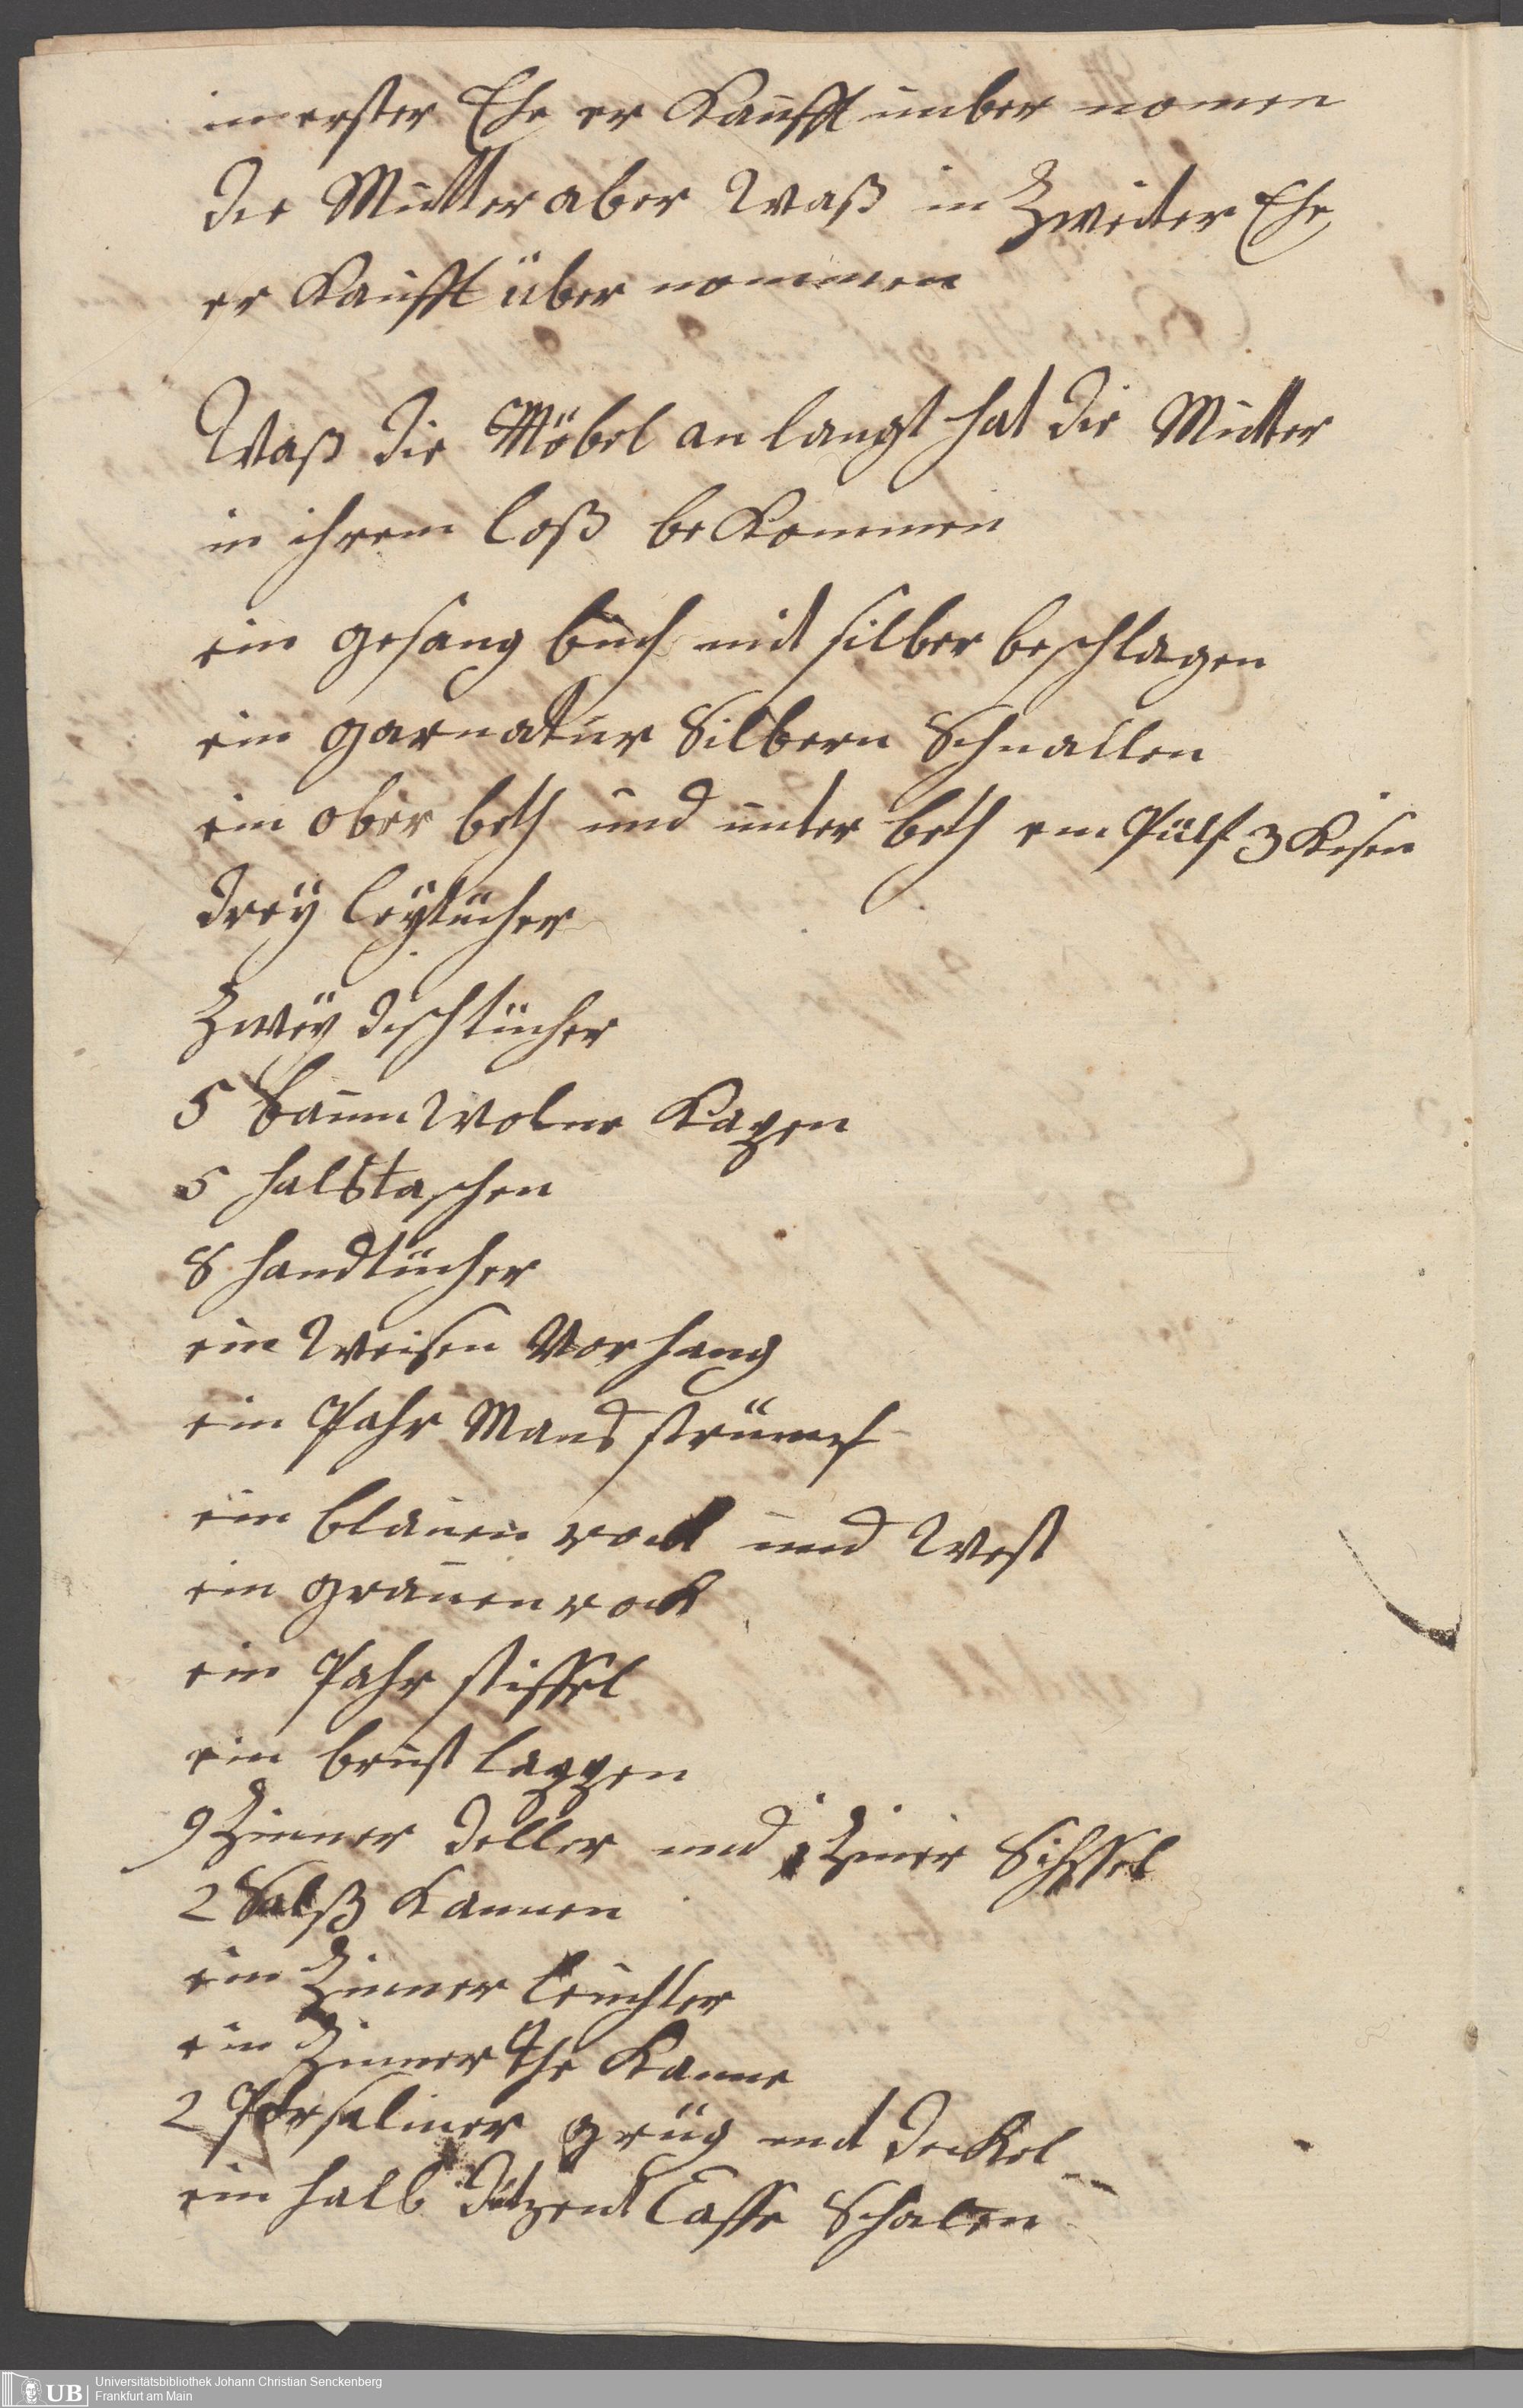 in erster Ehe er Kaufft unber nomen
Die Mutter aber Waß in Zweiter Ehe
er Kaufft über nommen
Waß Die Möbel an langt hat Die Mutter
in ihrem loß be Kommen
ein gesang buch mit silber beschlagen
ein garnatur Silbern Schnallen
ein ober beth und unter beth ein Pülf 3 Kisen
Dreÿ leÿtücher
Zweÿ dischtücher
5 baum Wolne Kapen
5 halstaschen
8 handtücher
ein Weisen Vor hang
ein Pahr Mans strümpf
ein blauen rock und West
ein grauen rock
ein Pahr stiffel
ein brust lappen
9 Zinner Deller und 1 Ziner Schssel
2 Salß Kannen
ein Zinner leuchter
ein Zinner The Kanne
2 Porseliner grüg mit DecKel
ein halb Dutzent Caffe Schalen
Universitätsbibliothek Johann Christian Senckenberg
UB Frankfurt am Main